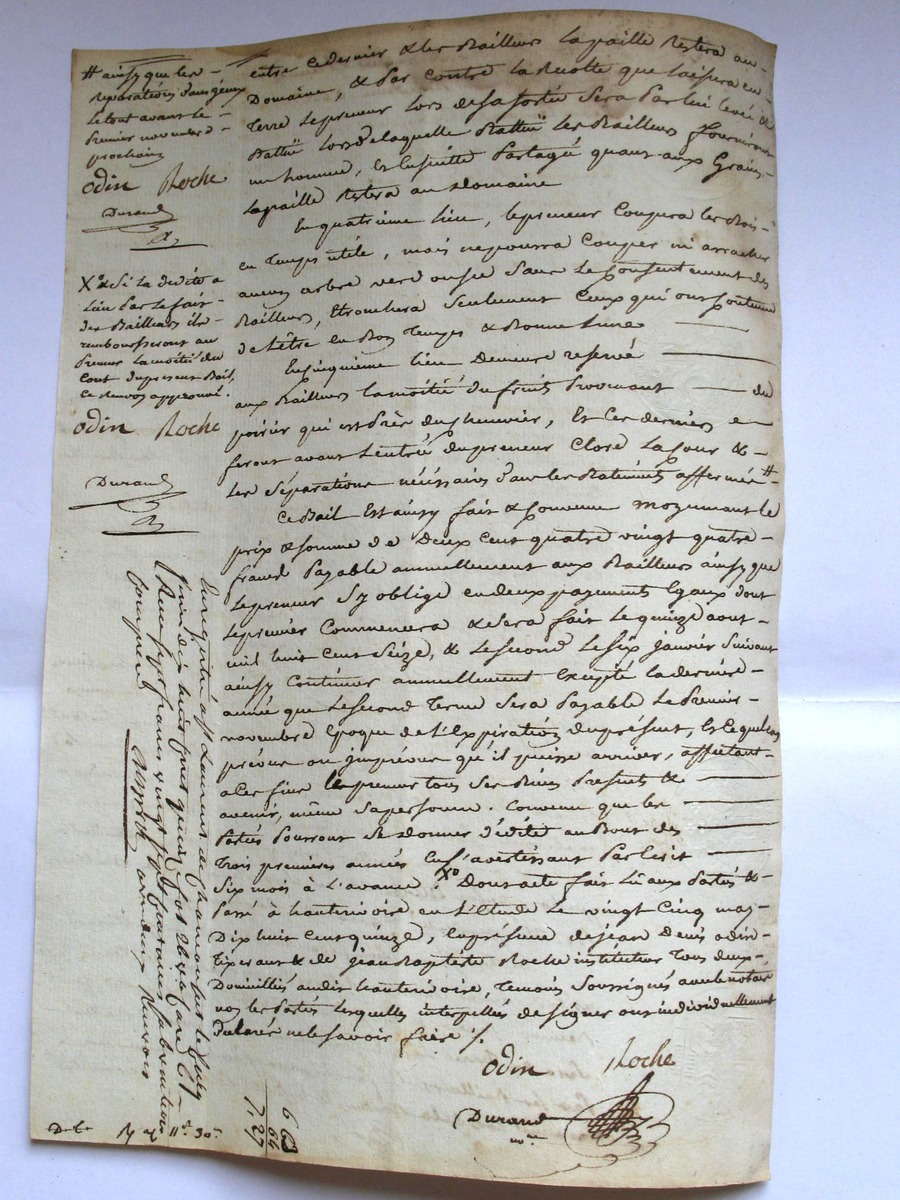 # ainsy que les
reparations d'ans yceux
Le tout avant le
Premier novembre
prochain
odin Roche
Durand
Xo & Si la dedite a
Lieu Par le fait
des Bailleurs ils
rembourseront au
Preneur la moitié du
Cout du present Bail,
Ce renvoy approuvé.
odin Roche
Durand
entre ce dernier & les Bailleurs la paille Restera au
Domaine, & Par contre la Recolte que laissera en
Terre le preneur lors de sa sortie Sera Par lui levée &
Battue Lors de laquelle Battue les Bailleurs fourniront
un homme, Et Ensuitte Partagée quant aux Grains
la paille Restera au domaine
En quatrieme lieu, le preneur Coupera les Bois
en Temps utile, mais ne pourra Couper ni arracher
aucun arbre verd ou sec Sans le Consentement des
Bailleurs, Et tronchera Seulement Ceux qui ont Coutume
de l'être en Bon Temps & Bonne Lune
En Cinquieme lieu Demeure reservé
aux Bailleurs la moitié du fruits Provenant du
poirier qui est Près du Chenevier, Et Ces derniers
feront avant l'entrée du preneur Clore la Cour &
les Séparations nécéssaires dans les Batiments affermés #
Ce Bail Est ainsy fait & Convenu moyennant le
prix & somme de Deux Cent quatre vingt quatre
francs Payable annuellement aux Bailleurs ainsy que
le preneur S'y oblige en deux payements Egaux dont
le premier Commencera & Sera fait le quinze aout
mil huit Cent Seize, & le second le Six janvier Suivant
ainsy Continuer annuellement Excepté la derniere
année que le second Terme Sera Payable le Premier
novembre Epoque de l'Expiration du présent, Et Ce quel cas
prévus ou imprévus qu'il puisse arriver, affectant
a Ces fins le preneur tous Ses Biens Presents &
avenir, même Sa personne. Convenu que les
Parties Pourront Se donner dédite au Bout des
Trois premieres années En S'avertissant Par Ecrit
Six mois à l'avance. Xo Dont acte fait Lu aux Parties &
Passé à hauterivoire en L'Etude le vingt Cinq may
Dix huit Cent quinze, En présence de jean Denis odin
Tixerant & de jean Baptiste Roche instituteur Tous deux
Domiciliés audit hauterivoire, Temoins Soussignés avec le notaire
non les Parties lesquelles interpellées de signer ont individuellement
Declaré ne le savoir faire /.
odin Roche
Durand
nre
Enregistré à St Laurent de Chamousset le Cinq
juin dix huit cent quinze fol 26
Reçu francs vingt Sept Centimes Subvention
Comprise
6 63
66
7. 27